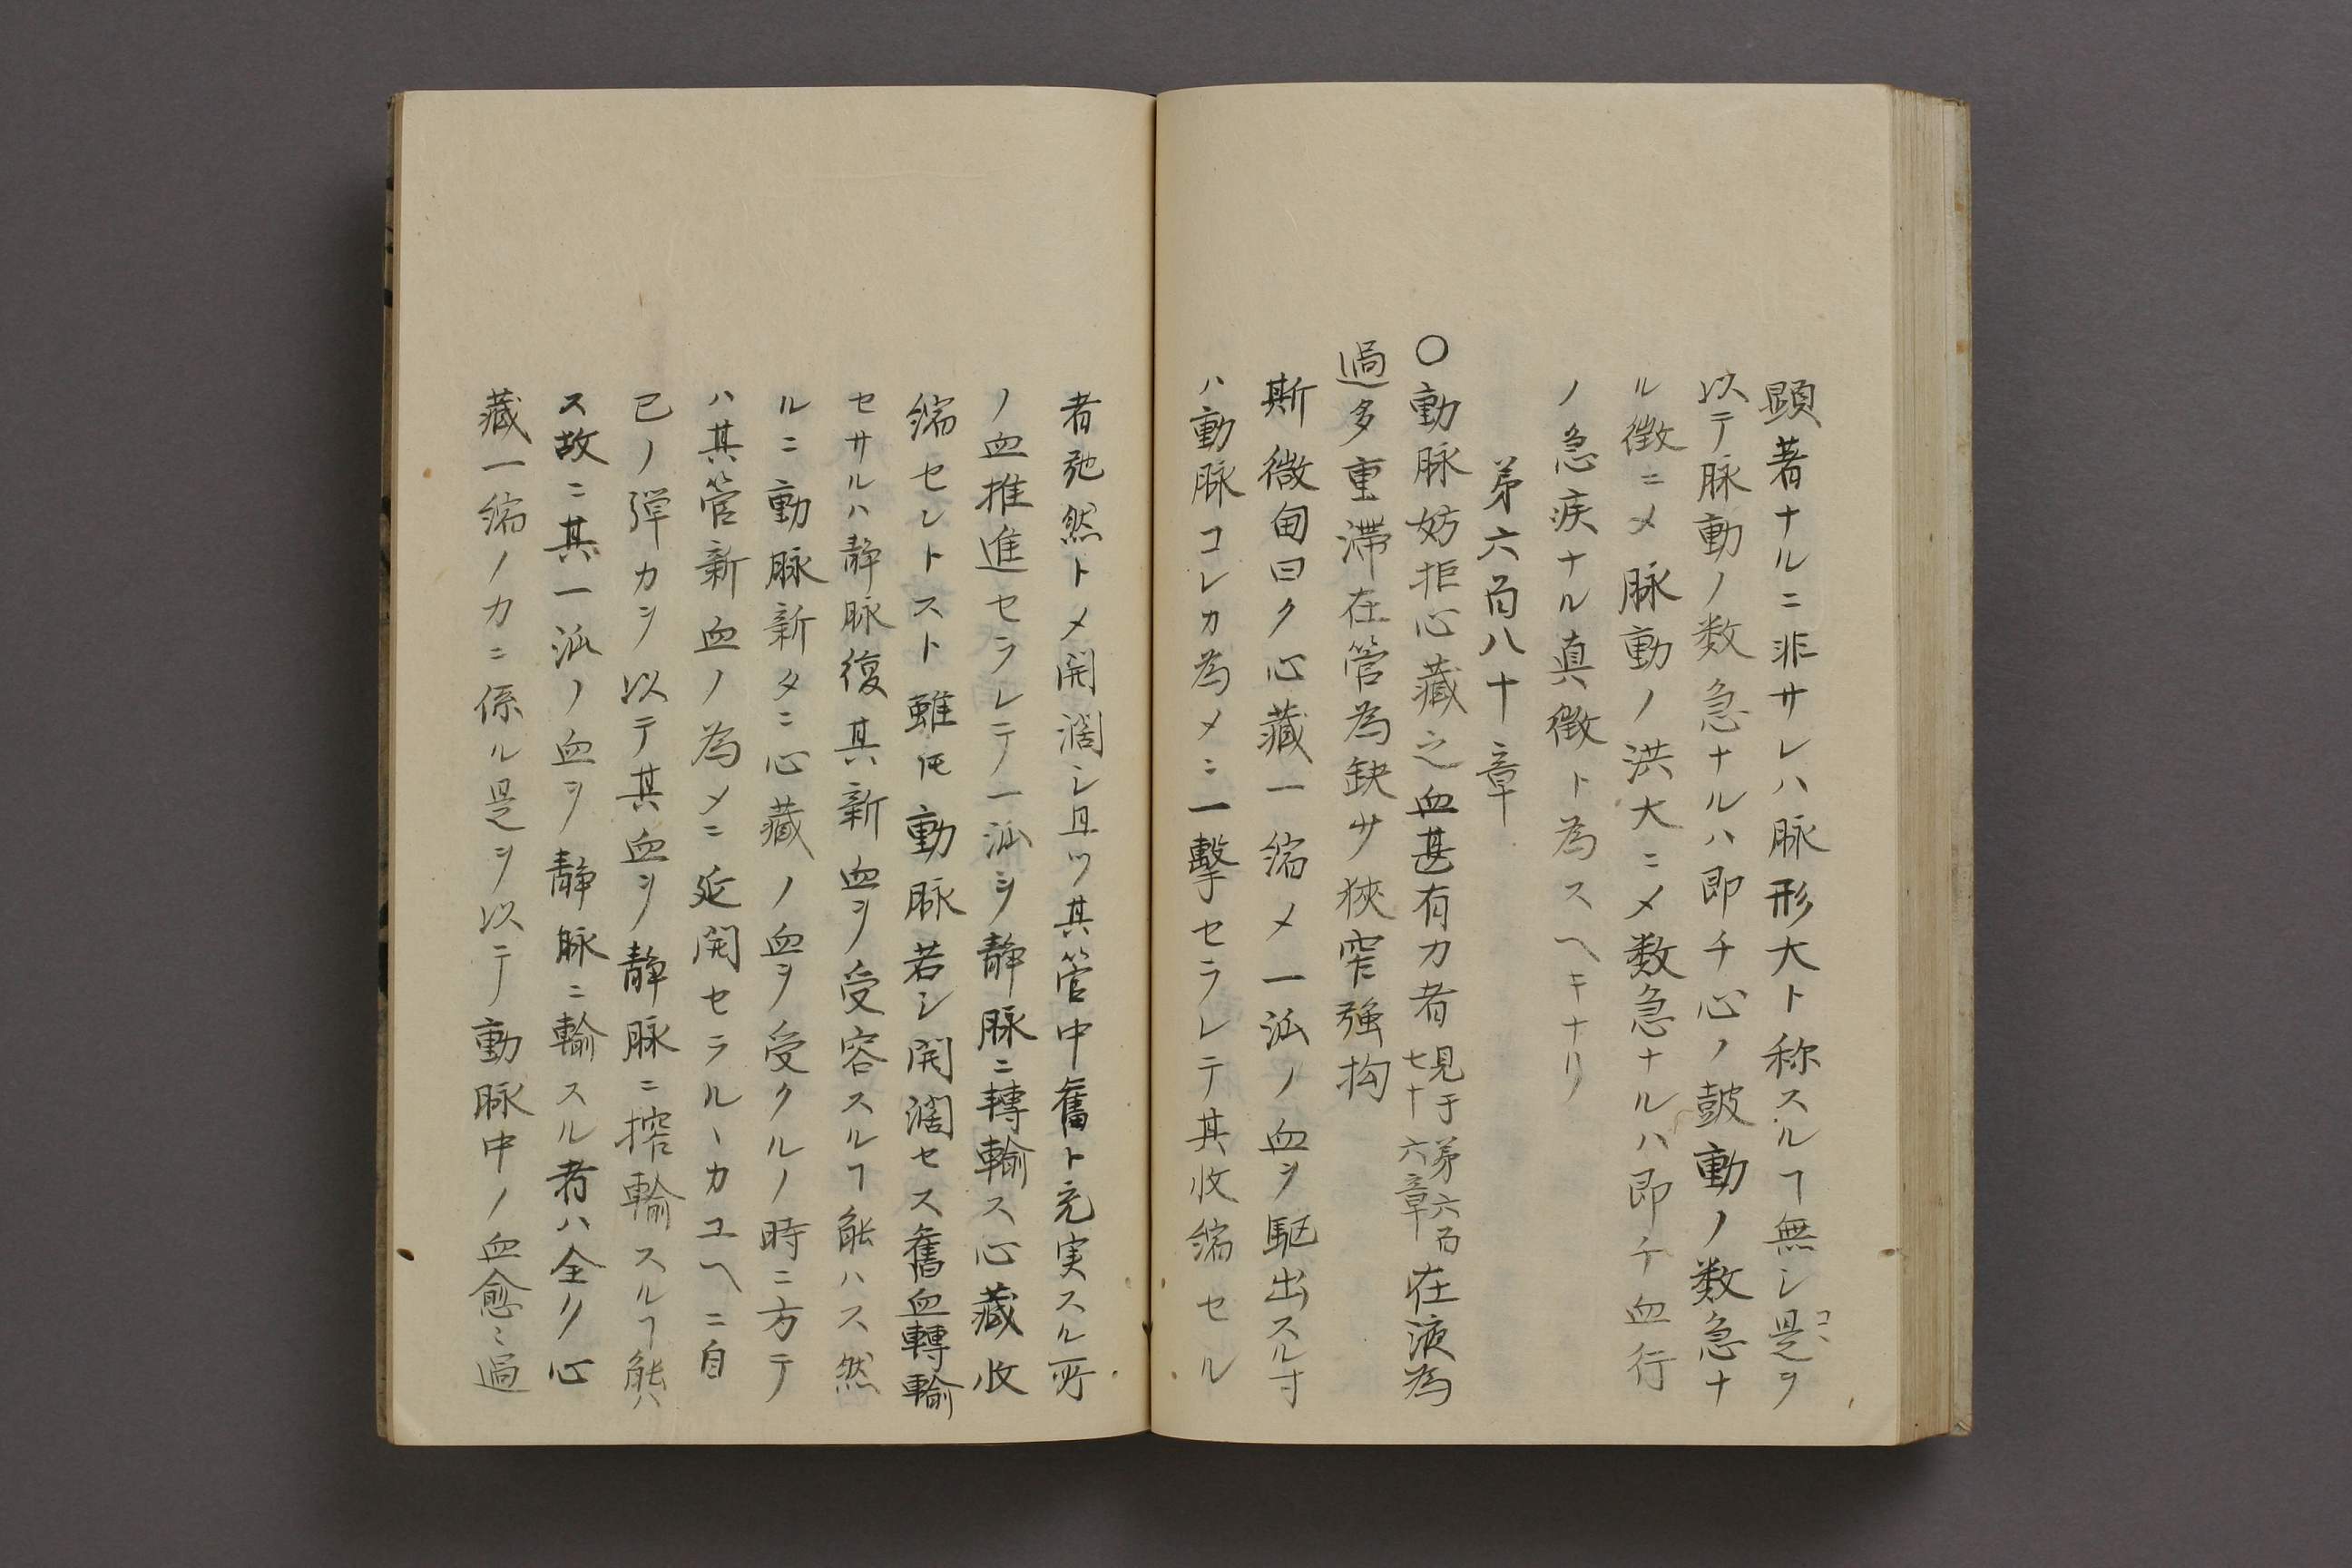 顕著ナルニ非サレハ脉形大ト称スルヿ無シ是ヲ
コヽ
以テ脉動ノ数急ナルハ即チ心ノ皷動ノ数急ナ
ル徴ニメ脉動ノ洪大ニメ数急ナルハ即チ血行
ノ急疾ナル真徴ト為スヘキナリ
苐六百八十章
〇動脉妨拒心藏之血甚有力者見于苐六百七十六章在液為
過多重滞在管為缺少狹窄強拘
斯微甸曰ク心藏一縮メ一泒ノ血ヲ駆出スル寸
ハ動脉コレカ為メニ一擊セラレテ其收縮セル
者弛然トメ開濶シ且ツ其管中舊ト充実スル所
ノ血推進セラレテ一泒ヲ静脉ニ轉輸ス心藏收
縮セントスト雖𪜈動脉若シ開濶セス舊血轉輸
セサルハ静脉復其新血ヲ受容スルヿ能ハス然
ルニ動脉新タニ心藏ノ血ヲ受クルノ時ニ方テ
ハ其管新血ノ為メニ延開セラルヽカユヘニ自
已ノ弾力ヲ以テ其血ヲ静脉ニ搾輸スルヿ能ハ
ス故ニ其一泒ノ血ヲ静脉ニ輸スル者ハ全ク心
藏一縮ノ力ニ係ル是ヲ以テ動脉中ノ血愈〻過